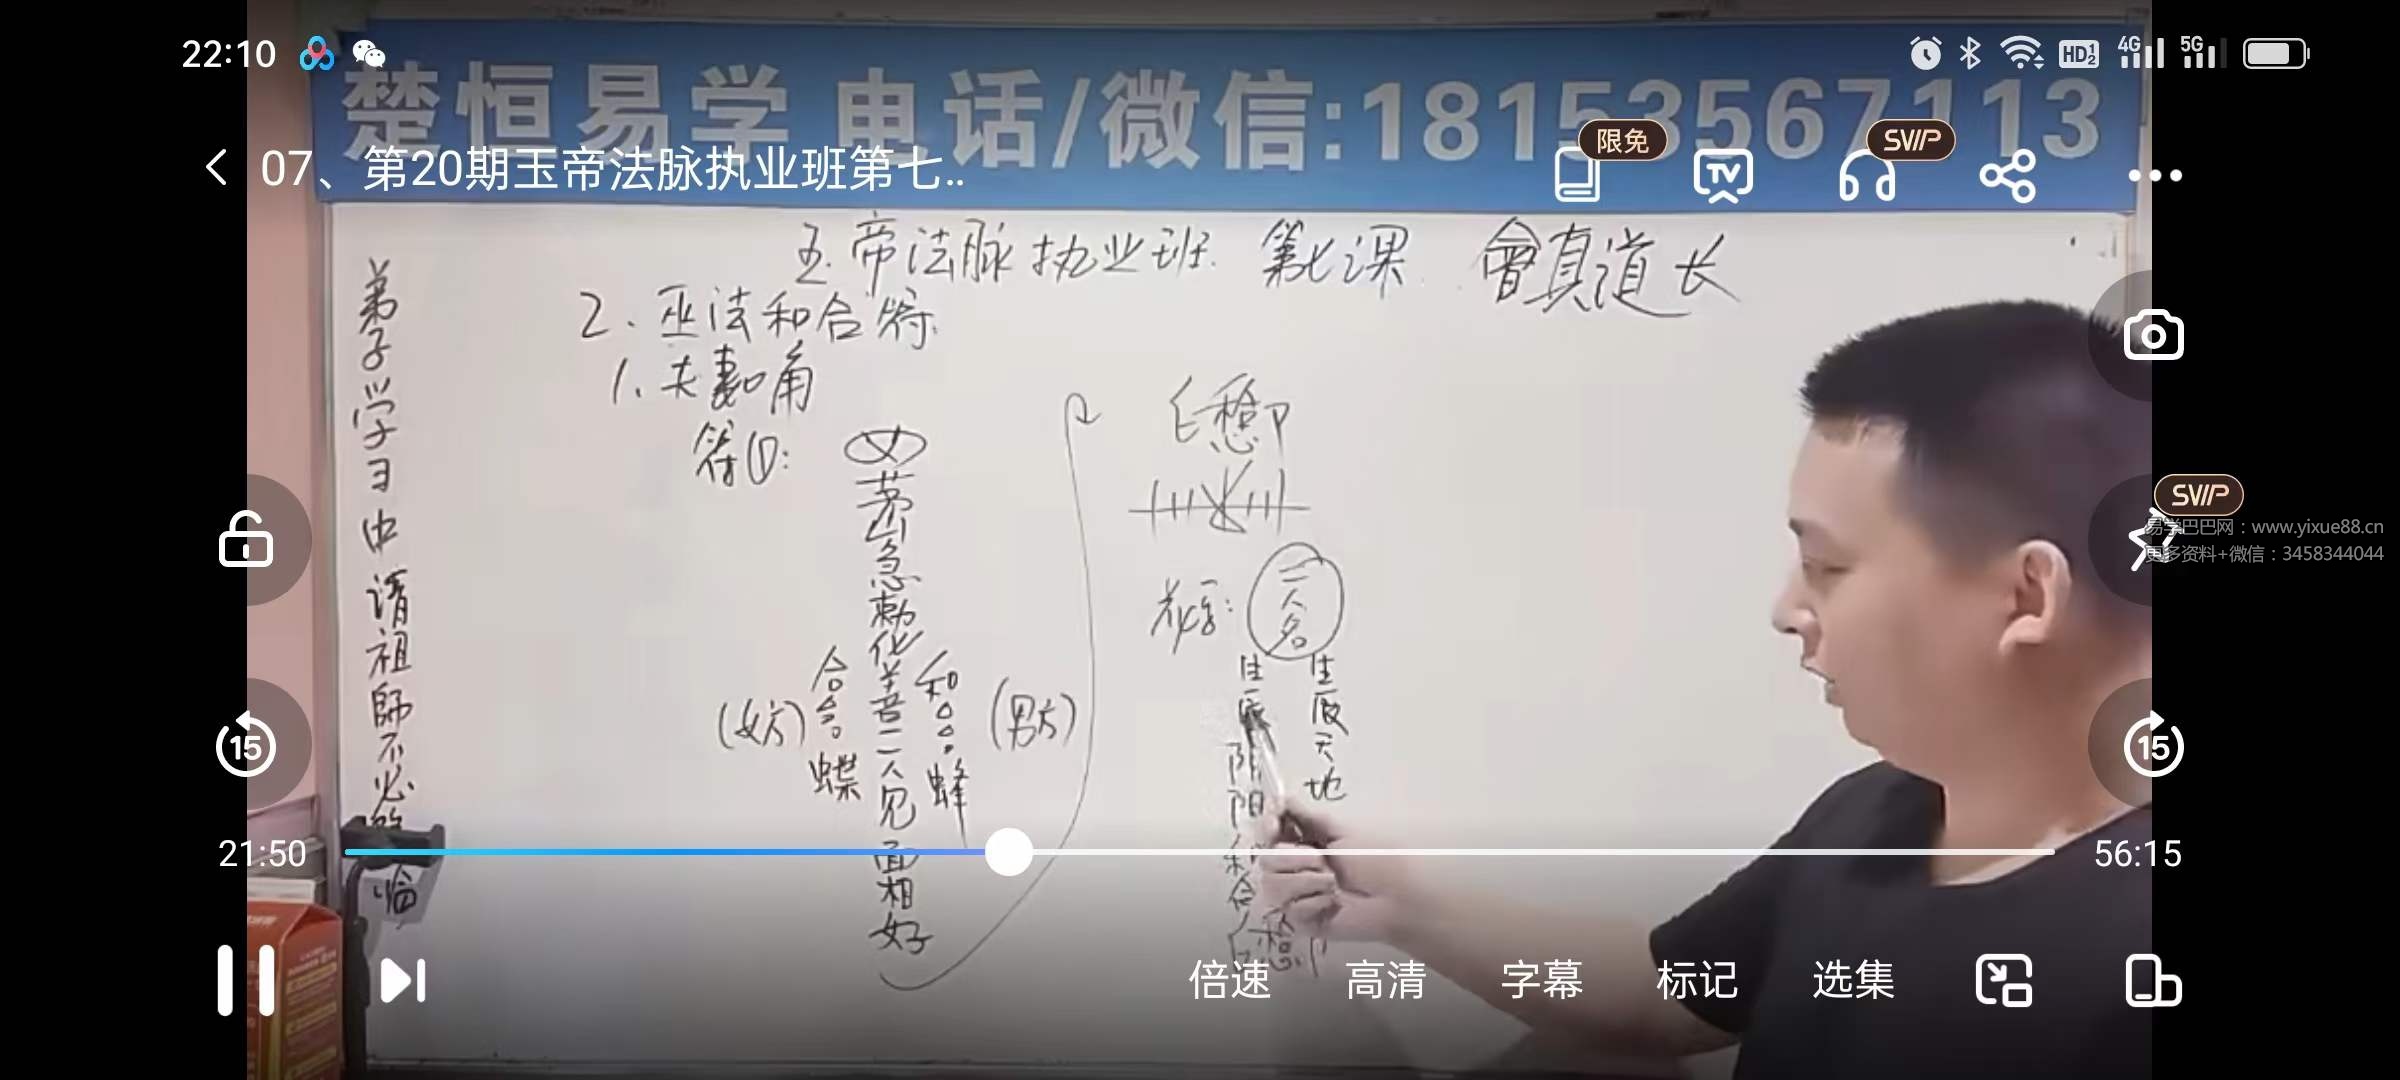 22:10
HD 1 2 4G 5G
楚恒易学 电话/微信:18153567113
07、第20期玉帝法脉执业班第七..
限免
SVIP
TV
玉帝法脉执业班 第七课 會真道长
2、巫法和合符
1、夫妻和角
符①:
女
茅山急勅化
合 和
(女方)
(男方)
蝶
蜂
二人见面相好
二人名
生辰
生辰天地
阴阳和合
弟子学习中请祖師不必
临
SVIP
易学巴巴网：www.yixue88.cn
更多资料+微信：3458344044
15
15
21:50
56:15
倍速 高清 字幕 标记 选集